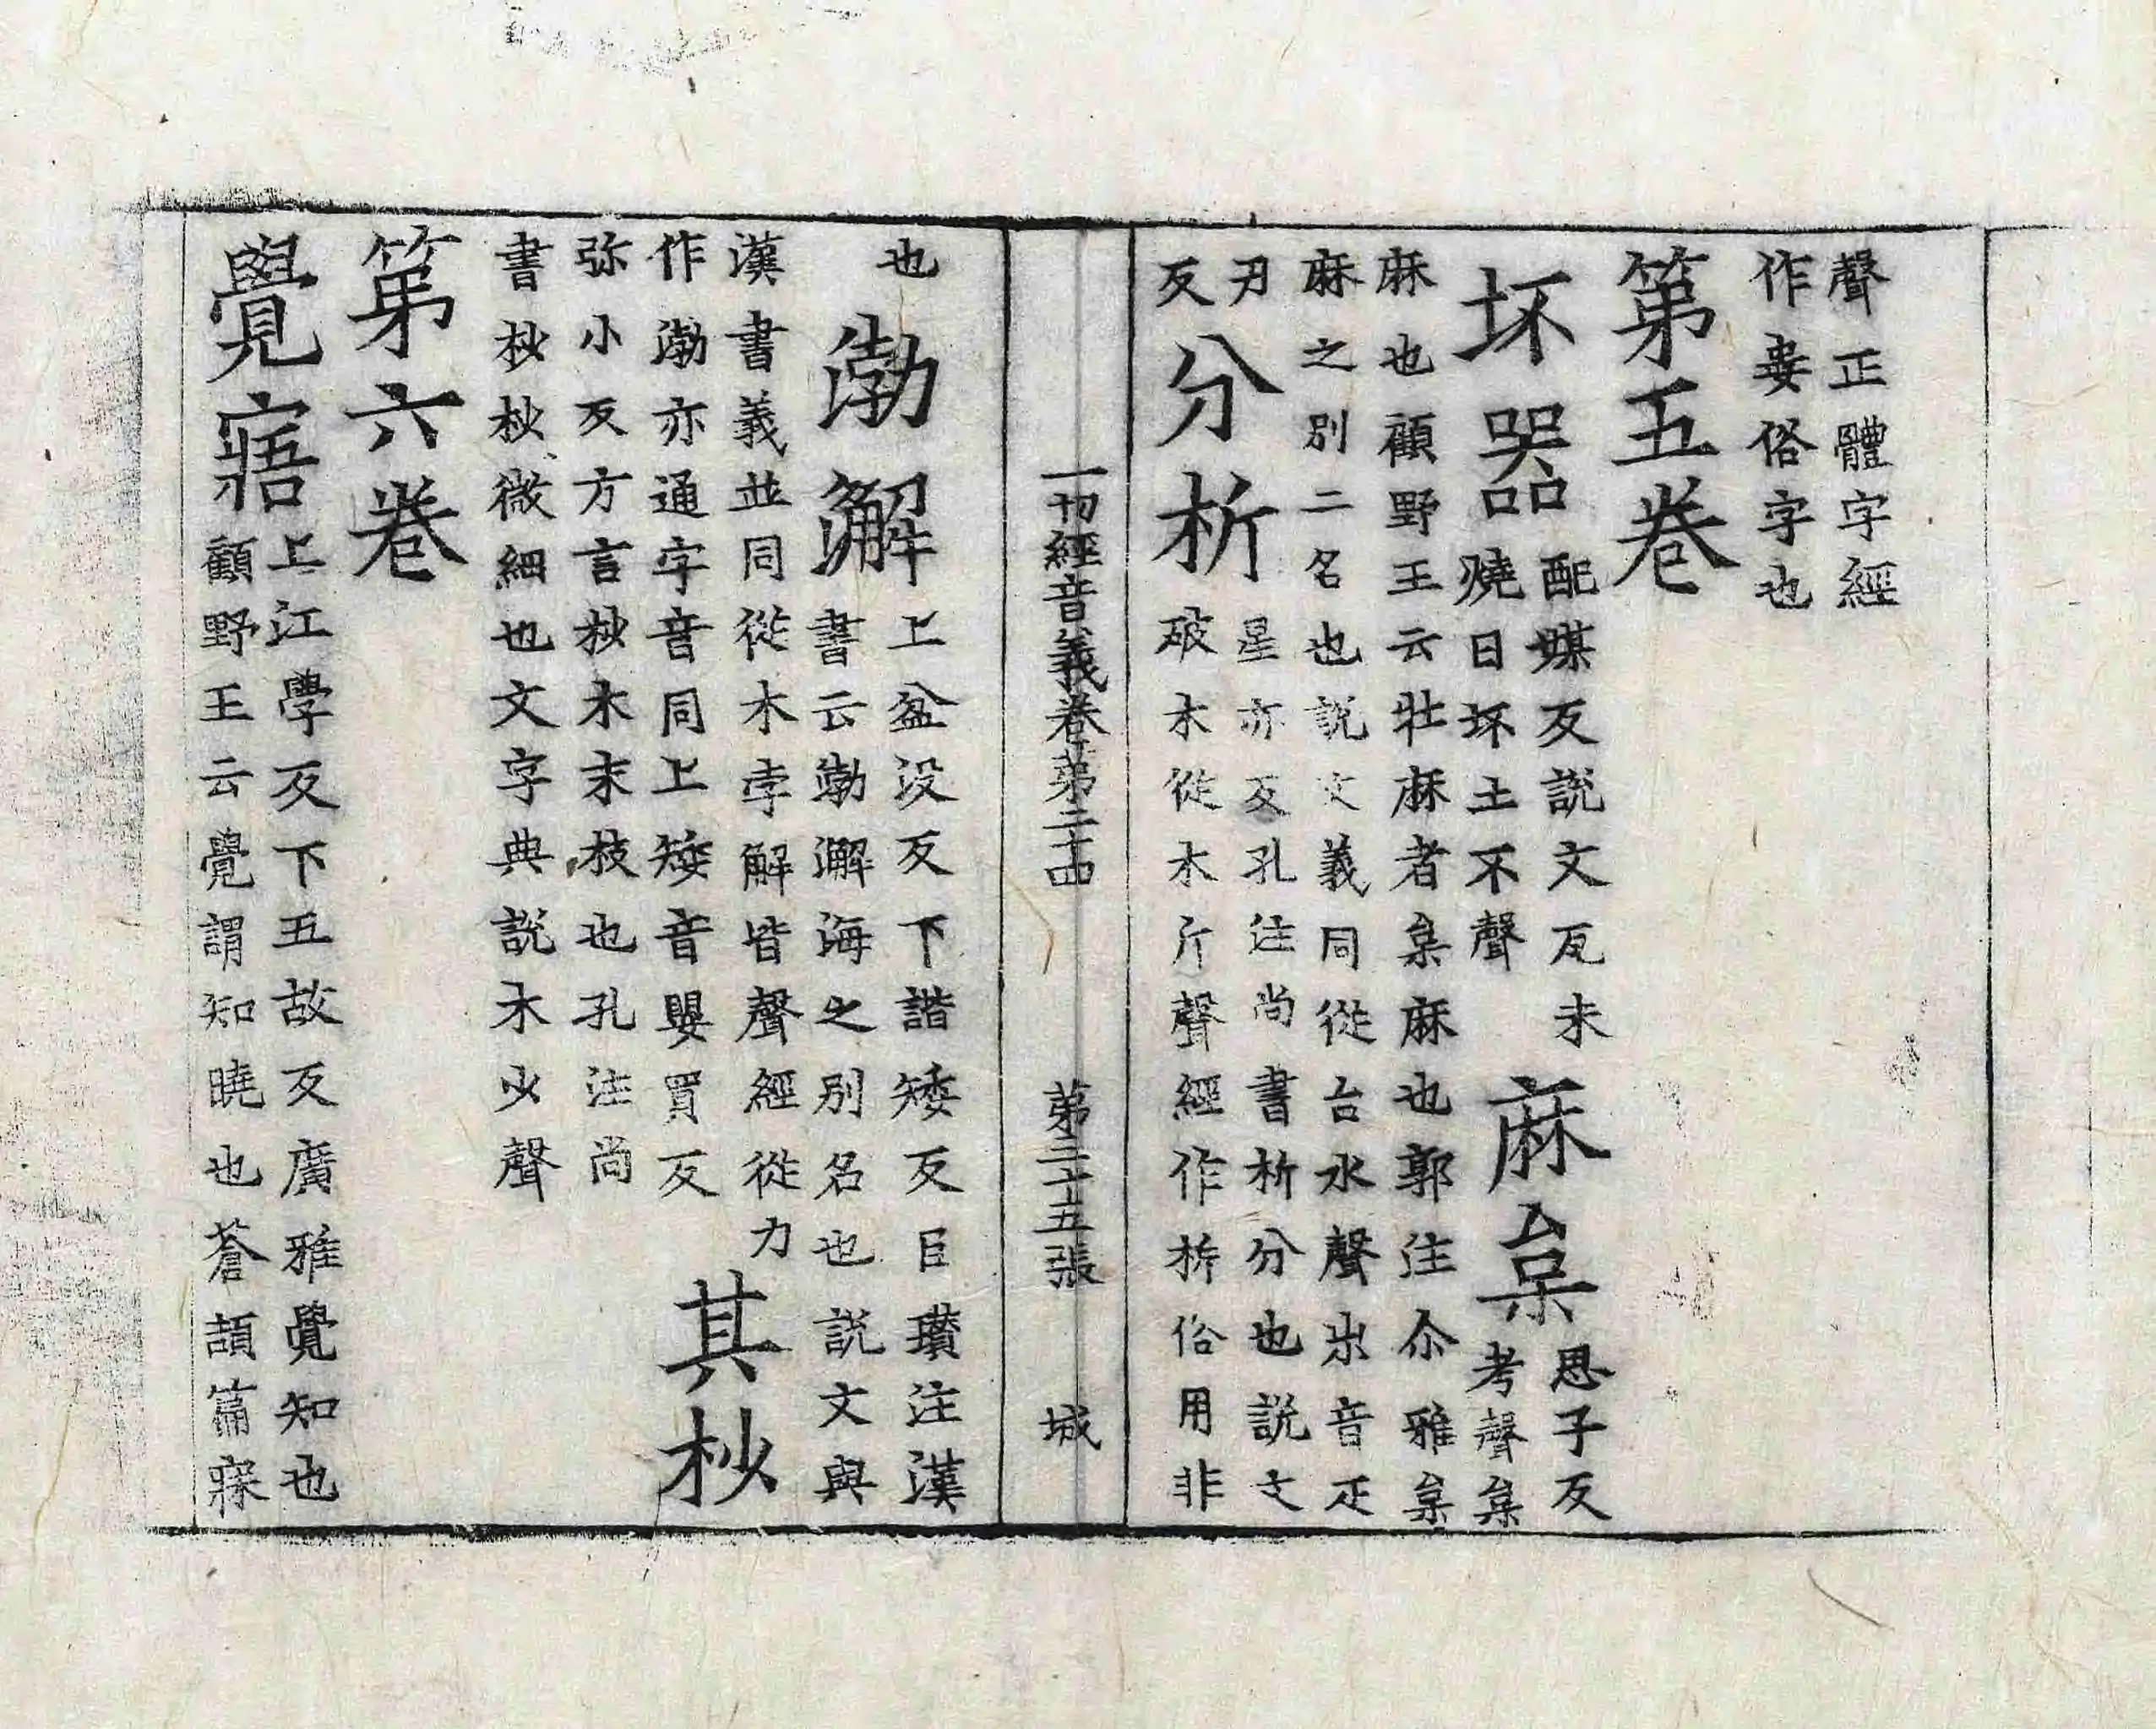 聲正體字經
作妛俗字也
第五卷
坏器
配媒反說文瓦未
燒曰坏土不聲
麻枲
思子反
考聲枲
麻也顧野王云牡麻者枲麻也郭注尒雅枲
麻之別二名也說文義同從台水聲出音疋
刃
反
分析
星亦反孔注尚書析分也說文
破木從木斤聲經作㭊俗用非
一切經音義卷第二十四 第二十五張 城
也
渤澥
上盆没反下諧矮反臣瓚注漢
書云渤澥海之別名也說文與
漢書義並同從木孛解皆聲經從力
作渤亦通字音同上矮音嬰買反
其杪
弥小反方言杪木末枝也孔注尚
書杪杪微細也文字典說木少聲
第六卷
覺寤
上江學反下五故反廣雅覺知也
顧野王云覺謂知曉也蒼頡篇寐